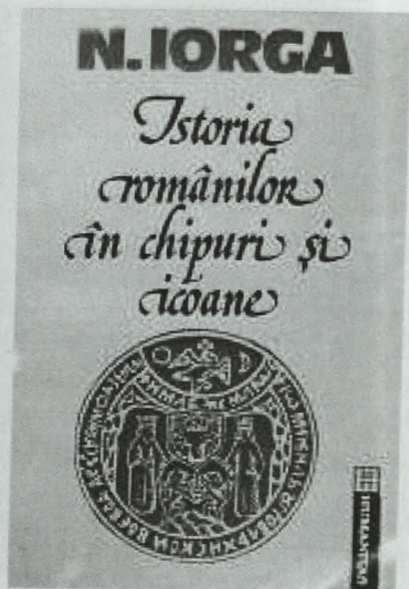 N. IORGA
Istoria
românilor
în chipuri și
icoane
HUMANITAS